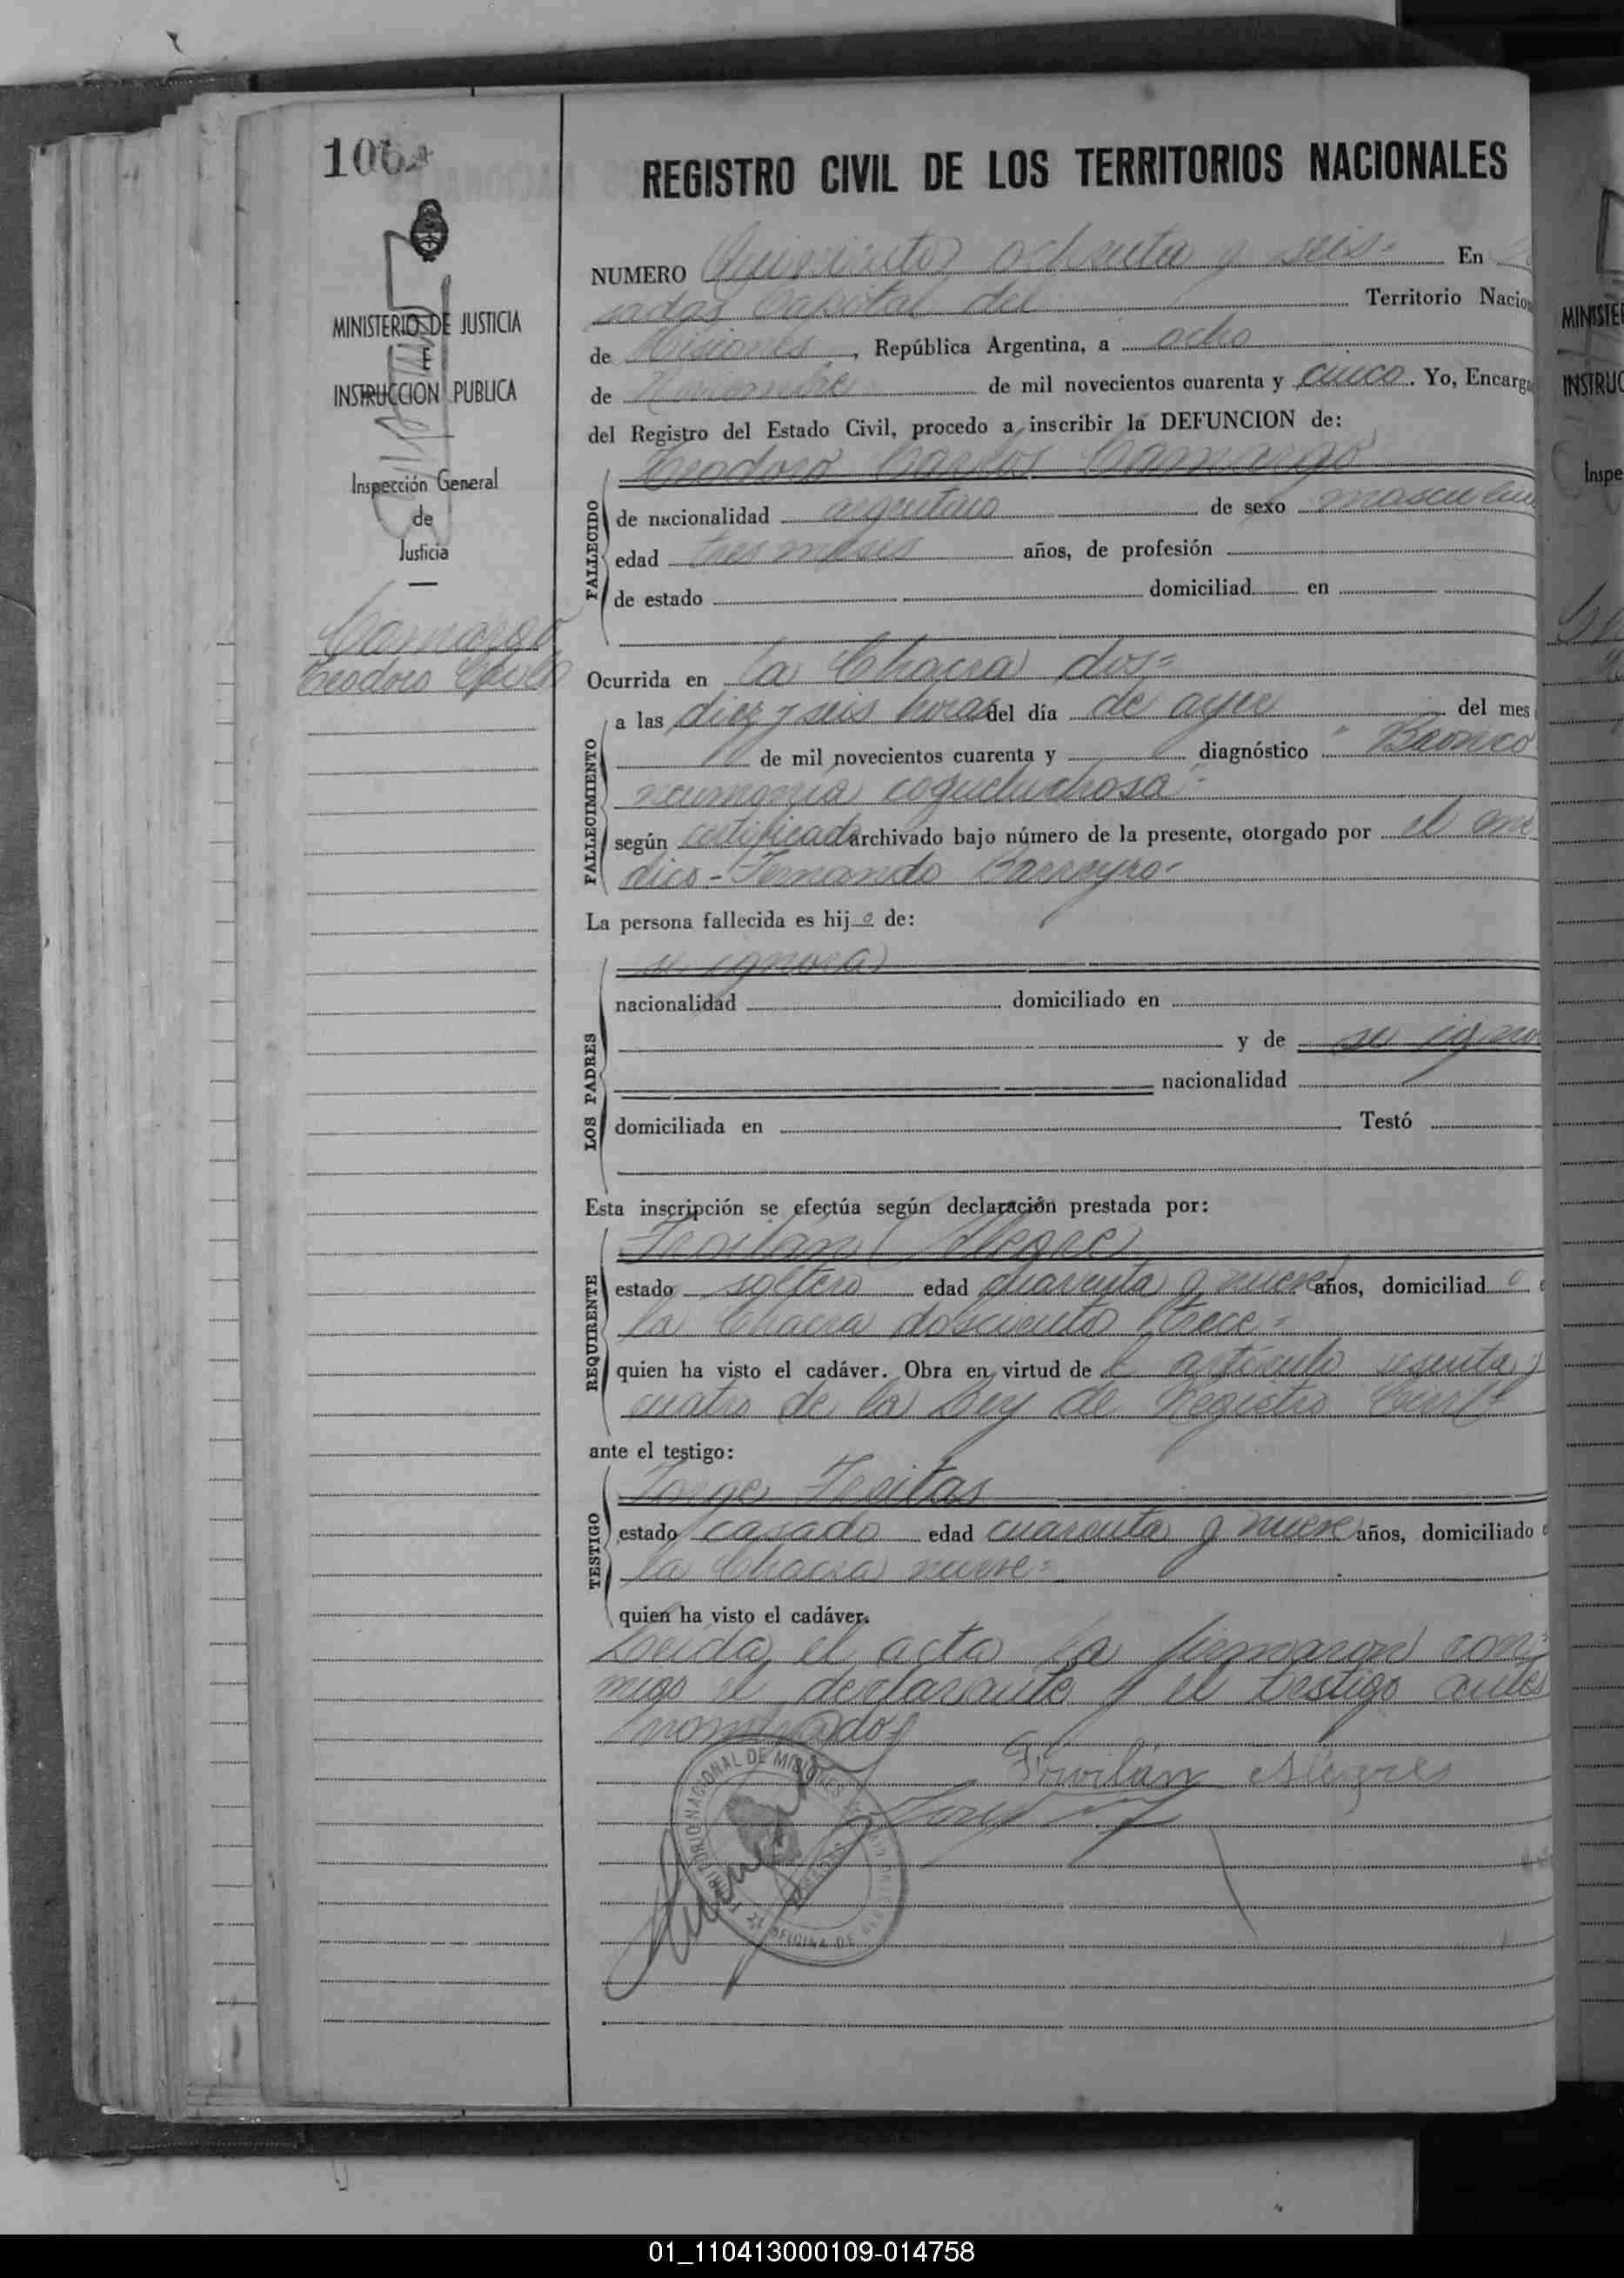 REGISTRO CIVIL DE LOS TERRITORIOS NACIONALES
MINISTERIO DE JUSTICIA
E
INSTRUCCION PUBLICA
Inspección General
de
Justicia
Camargo
Teodoro Carlos
NUMERO Quinientos ochenta y seis- En
sadas Capital del Territorio Nacion
de Misiones, República Argentina, a ocho
de Noviembre de mil novecientos cuarenta y cinco. Yo, Encarga
del Registro del Estado Civil, procedo a inscribir la DEFUNCION de:
FALLECIDO
Teodoro Carlos Camargo
de nacionalidad argentino de sexo masculino
edad tres meses años, de profesión
de estado domiciliad en
Ocurrida en la Chacra dos-
FALLECIMIENTO
a las diez y seis horas del día de ayer del mes
de mil novecientos cuarenta y diagnóstico "Bronco
neumonia coqueluchosa"-
según certificado archivado bajo número de la presente, otorgado por el me
dico- Fernando Barreyro-
La persona fallecida es hijo de:
LOS PADRES
se ignora
nacionalidad domiciliado en
y de se igno
nacionalidad
domiciliada en Testó
Esta inscripción se efectúa según declaración prestada por:
REQUIRENTE
Froilan Alegre
estado soltero edad cuarenta y nueve años, domiciliado
la Chacra doscientos trece-
quien ha visto el cadáver. Obra en virtud del artículo sesenta y
cuatro de la Ley de Registro Civil-
ante el testigo:
TESTIGO
Jorge Freitas
estado casado edad cuarenta y nueve años, domiciliado
la Chacra nueve-
quien ha visto el cadáver.
Leida el acta la firmaron con-
migo el declarante y el testigo antes
nombrados
TERRITORIO NACIONAL DE MISIONES
OFICINA DE
MINISTE
INSTRUC
Inspe
01_110413000109-014758